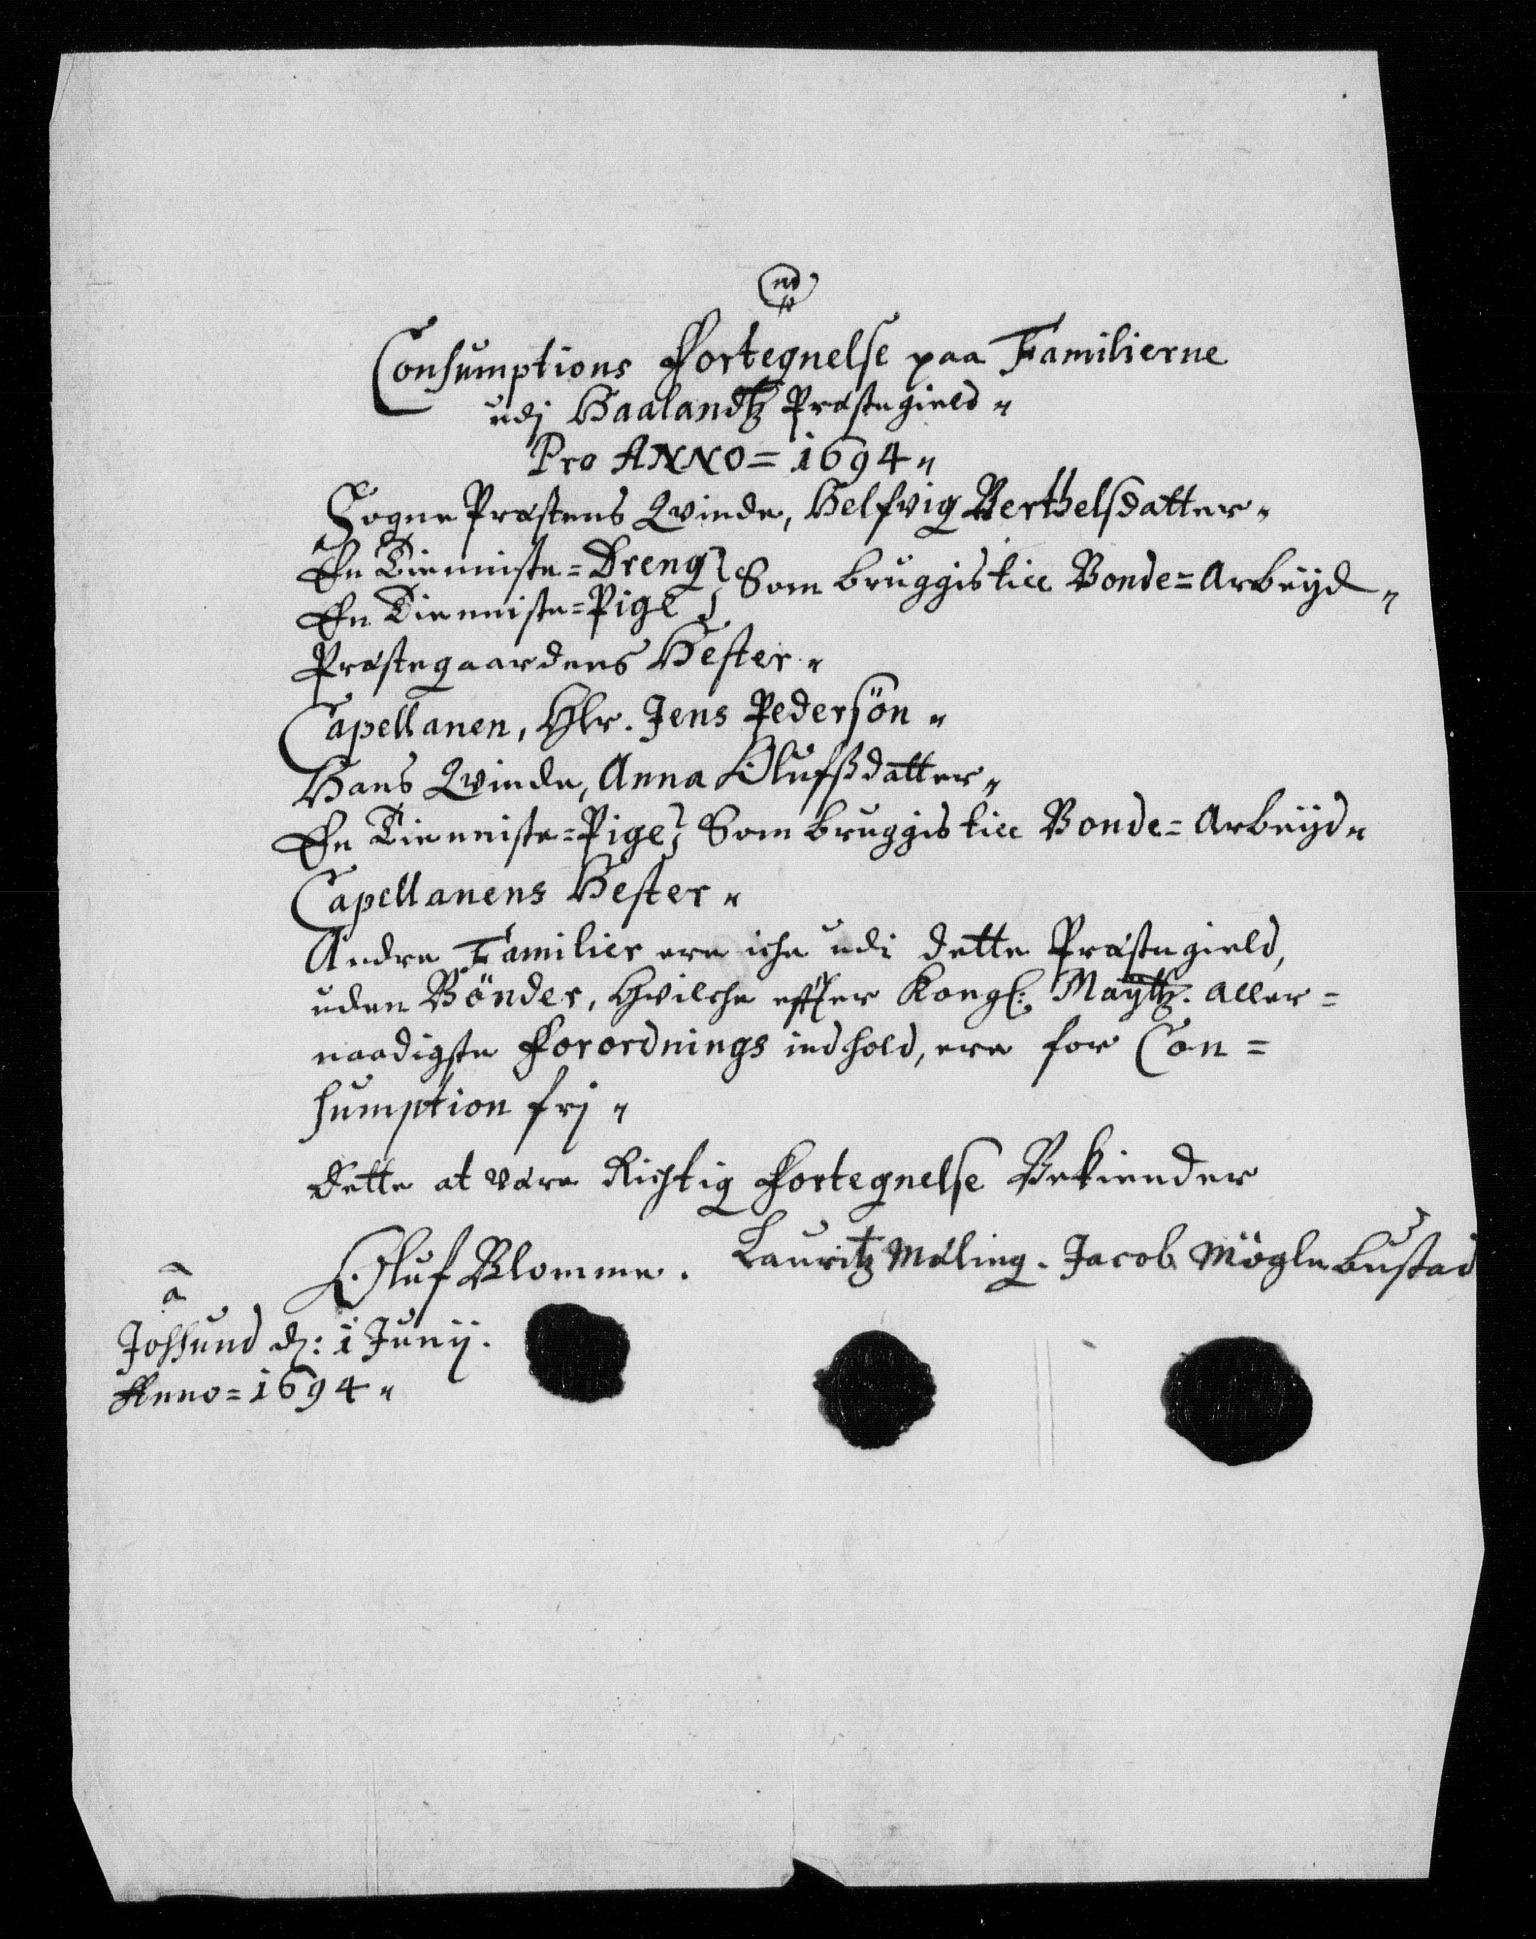 Consumptions Fortegnelse paa Familierne
udj Haalandtz Præstegield "
Pro ANNO = 1694 "
Sogne Præstens Qvinde, Helfvig Berthelsdatter "
En Tienniste = Dreng } Som bruggis till Bonde = Arbeyd "
En Tienniste = Pige }
Præstegaardens Hester "
Capellanen, Hlr. Jens Pedersön "
Hans Qvinde, Anna Olufsdatter "
En Tienniste = Pige } Som bruggis till Bonde = Arbeyd "
Capellanens Hester "
Andre Familier ere iche udi dette Præstegield,
uden Bönder, hvilche effter Kongl: Maytz. aller =
naadigste Forordnings indhold, ere for Con =
sumption frj "
Dette at være Richtig Fortegnelse Bekiender
Oluf Blomme. Lauritz Mæling. Jacob Möglebustad
a
Jossund d: 1 Junij.
Anno = 1694 "